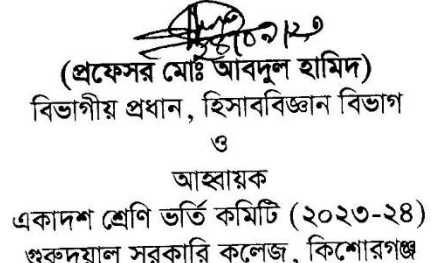 (প্রফেসর মোঃ আবদুল হামিদ)
বিভাগীয় প্রধান, হিসাববিজ্ঞান বিভাগ
ও
আহ্বায়ক
একাদশ শ্রেণি ভর্তি কমিটি (২০২৩-২৪)
গুরুদয়াল সরকারি কলেজ, কিশোরগঞ্জ